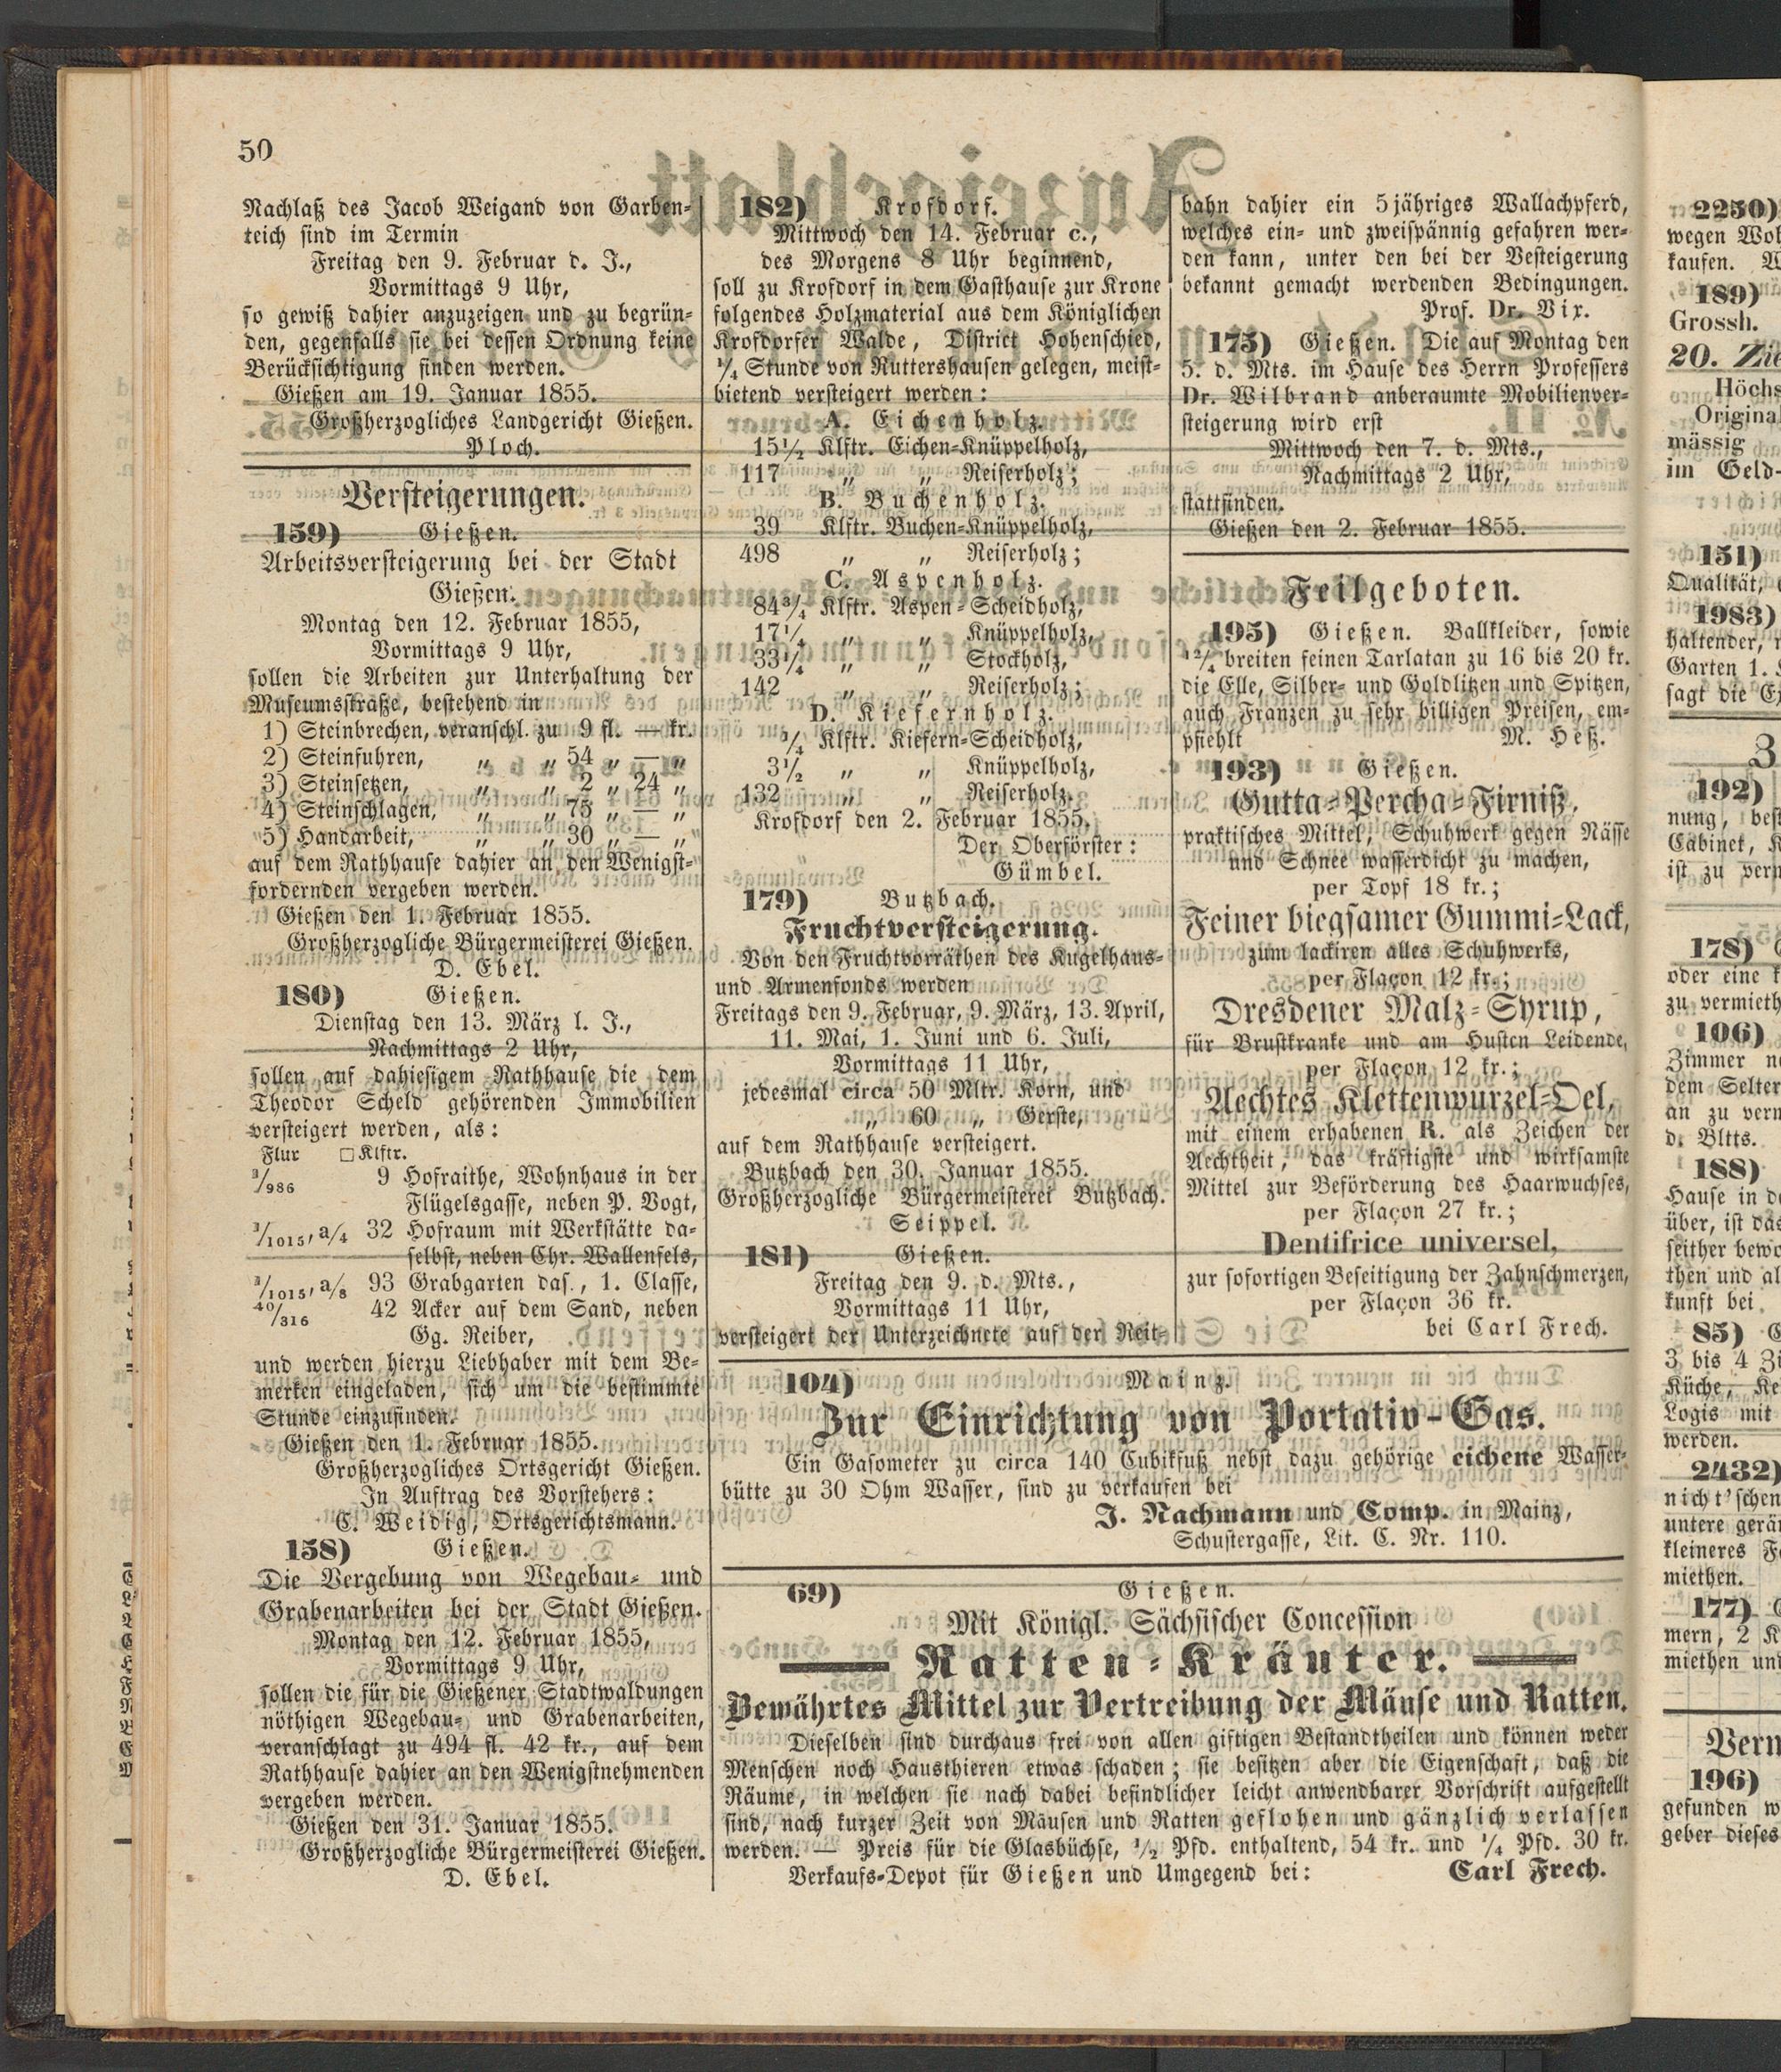 50
Nachlaß des Jacob Weigand von Garben-
teich sind im Termin
Freitag den 9. Februar d. J.,
Vormittags 9 Uhr,
so gewiß dahier anzuzeigen und zu begrün-
den, gegenfalls sie bei dessen Ordnung keine
Berücksichtigung finden werden.
Gießen am 19. Januar 1855.
Großherzogliches Landgericht Gießen.
Ploch.
Versteigerungen.
159) Gießen.
Arbeitsversteigerung bei der Stadt
Gießen.
Montag den 12. Februar 1855,
Vormittags 9 Uhr,
sollen die Arbeiten zur Unterhaltung der
Museumsstraße, bestehend in
1) Steinbrechen, veranschl. zu 9 fl. — kr.
2) Steinfuhren, „ „ 54 „ — „
3) Steinsetzen, „ „ 2 „ 24 „
4) Steinschlagen, „ „ 75 „ — „
5) Handarbeit, „ „ 30 „ — „
auf dem Rathhause dahier an den Wenigst-
fordernden vergeben werden.
Gießen den 1. Februar 1855.
Großherzogliche Bürgermeisterei Gießen.
D. Ebel.
180) Gießen.
Dienstag den 13. März l. J.,
Nachmittags 2 Uhr,
sollen auf dahiesigem Rathhause die dem
Theodor Scheld gehörenden Immobilien
versteigert werden, als:
Flur □Klftr.
³/₉₈₆ 9 Hofraithe, Wohnhaus in der
Flügelsgasse, neben P. Vogt,
³/₁₀₁₅, a/₄ 32 Hofraum mit Werkstätte da-
selbst, neben Chr. Wallenfels,
³/₁₀₁₅, a/₈ 93 Grabgarten das., 1. Classe,
⁴⁰/₃₁₆ 42 Acker auf dem Sand, neben
Gg. Reiber,
und werden hierzu Liebhaber mit dem Be-
merken eingeladen, sich um die bestimmte
Stunde einzufinden.
Gießen den 1. Februar 1855.
Großherzogliches Ortsgericht Gießen.
In Auftrag des Vorstehers:
C. Weidig, Ortsgerichtsmann.
158) Gießen.
Die Vergebung von Wegebau- und
Grabenarbeiten bei der Stadt Gießen.
Montag den 12. Februar 1855,
Vormittags 9 Uhr,
sollen die für die Gießener Stadtwaldungen
nöthigen Wegebau- und Grabenarbeiten,
veranschlagt zu 494 fl. 42 kr., auf dem
Rathhause dahier an den Wenigstnehmenden
vergeben werden.
Gießen den 31. Januar 1855.
Großherzogliche Bürgermeisterei Gießen.
D. Ebel.
182) Krofdorf.
Mittwoch den 14. Februar c.,
des Morgens 8 Uhr beginnend,
soll zu Krofdorf in dem Gasthause zur Krone
folgendes Holzmaterial aus dem Königlichen
Krofdorfer Walde, District Hohenschied,
¼ Stunde von Ruttershausen gelegen, meist-
bietend versteigert werden:
A. Eichenholz.
15½ Klftr. Eichen-Knüppelholz,
117 „ „ Reiserholz;
B. Buchenholz.
39 Klftr. Buchen-Knüppelholz,
498 „ „ Reiserholz;
C. Aspenholz.
84¾ Klftr. Aspen-Scheidholz,
17¼ „ „ Knüppelholz,
33¼ „ „ Stockholz,
142 „ „ Reiserholz;
D. Kiefernholz.
¾ Klftr. Kiefern-Scheidholz,
3½ „ „ Knüppelholz,
132 „ „ Reiserholz.
Krofdorf den 2. Februar 1855.
Der Oberförster:
Gümbel.
179) Butzbach.
Fruchtversteigerung.
Von den Fruchtvorräthen des Kugelhaus-
und Armenfonds werden
Freitags den 9. Februar, 9. März, 13. April,
11. Mai, 1. Juni und 6. Juli,
Vormittags 11 Uhr,
jedesmal circa 50 Mltr. Korn, und
„ 60 „ Gerste,
auf dem Rathhause versteigert.
Butzbach den 30. Januar 1855.
Großherzogliche Bürgermeisterei Butzbach.
Seippel.
181) Gießen.
Freitag den 9. d. Mts.,
Vormittags 11 Uhr,
versteigert der Unterzeichnete auf der Reit-
bahn dahier ein 5jähriges Wallachpferd,
welches ein- und zweispännig gefahren wer-
den kann, unter den bei der Versteigerung
bekannt gemacht werdenden Bedingungen.
Prof. Dr. Vix.
175) Gießen. Die auf Montag den
5. d. Mts. im Hause des Herrn Professers
Dr. Wilbrand anberaumte Mobilienver-
steigerung wird erst
Mittwoch den 7. d. Mts.,
Nachmittags 2 Uhr,
stattfinden.
Gießen den 2. Februar 1855.
Feilgeboten.
195) Gießen. Ballkleider, sowie
¹²/₄ breiten feinen Tarlatan zu 16 bis 20 kr.
die Elle, Silber- und Goldlitzen und Spitzen,
auch Franzen zu sehr billigen Preisen, em-
pfiehlt M. Heß.
193) Gießen.
Gutta-Percha-Firniß,
praktisches Mittel, Schuhwerk gegen Nässe
und Schnee wasserdicht zu machen,
per Topf 18 kr.;
Feiner biegsamer Gummi-Lack,
zum lackiren alles Schuhwerks,
per Flaçon 12 kr.;
Dresdener Malz-Syrup,
für Brustkranke und am Husten Leidende,
per Flaçon 12 kr.;
Aechtes Klettenwurzel-Oel,
mit einem erhabenen R. als Zeichen der
Aechtheit, das kräftigste und wirksamste
Mittel zur Beförderung des Haarwuchses,
per Flaçon 27 kr.;
Dentifrice universel,
zur sofortigen Beseitigung der Zahnschmerzen,
per Flaçon 36 kr.
bei Carl Frech.
104) Mainz.
Zur Einrichtung von Portativ-Gas.
Ein Gasometer zu circa 140 Cubikfuß nebst dazu gehörige eichene Wasser-
bütte zu 30 Ohm Wasser, sind zu verkaufen bei
J. Nachmann und Comp. in Mainz,
Schustergasse, Lit. C. Nr. 110.
69) Gießen.
Mit Königl. Sächsischer Concession
Ratten-Kräuter.
Bewährtes Mittel zur Vertreibung der Mäuse und Ratten.
Dieselben sind durchaus frei von allen giftigen Bestandtheilen und können weder
Menschen noch Hausthieren etwas schaden; sie besitzen aber die Eigenschaft, daß die
Räume, in welchen sie nach dabei befindlicher leicht anwendbarer Vorschrift aufgestellt
sind, nach kurzer Zeit von Mäusen und Ratten geflohen und gänzlich verlassen
werden. — Preis für die Glasbüchse, ½ Pfd. enthaltend, 54 kr. und ¼ Pfd. 30 kr.
Verkaufs-Depot für Gießen und Umgegend bei: Carl Frech.
2250)
wegen
kaufen.
189)
Grossh.
20.
Original
mässig
im Geld-
151)
Qualität,
1983)
Garten 1.
sagt die
192)
Cabinet,
178)
oder eine
106)
Zimmer
an zu
d. Bltts.
188)
Hause in
über, ist
then und
kunft bei
85)
3 bis 4
Küche,
Logis mit
werden.
2432)
kleineres
miethen.
177)
mern, 2
miethen
196)
gefunden
geber dieses